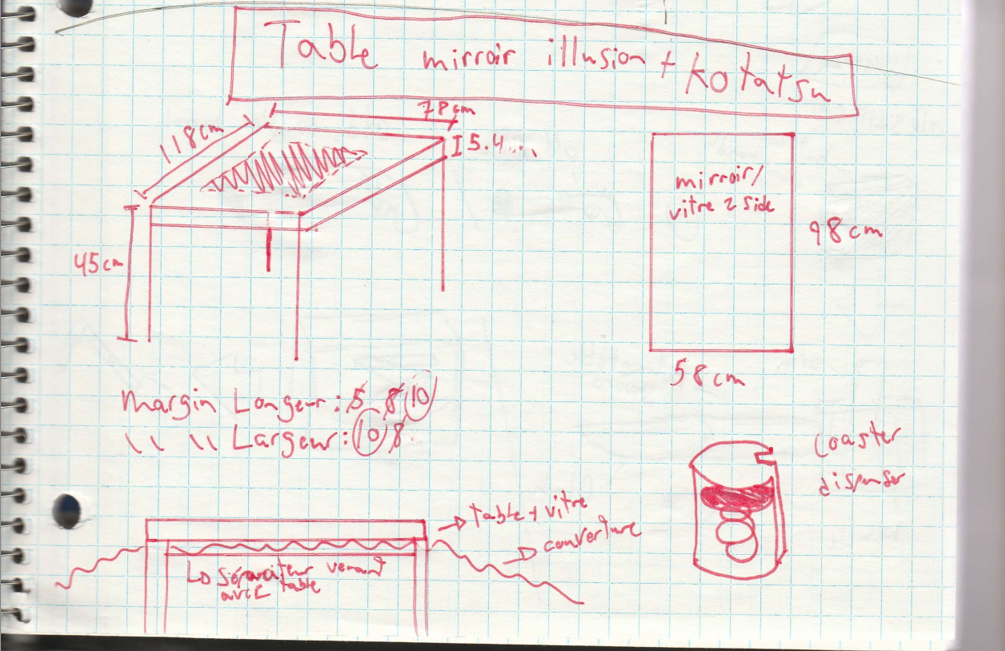 Table mirroir illusion + kotatsu
78cm
118cm
5.4...
mirroir/
vitre 2 side
98cm
45cm
58cm
Margin Longeur: 5 8 10
\\ \\ Largeur: 10 8
coaster
dispenser
table + vitre
couverture
Séparateur venant
avec table